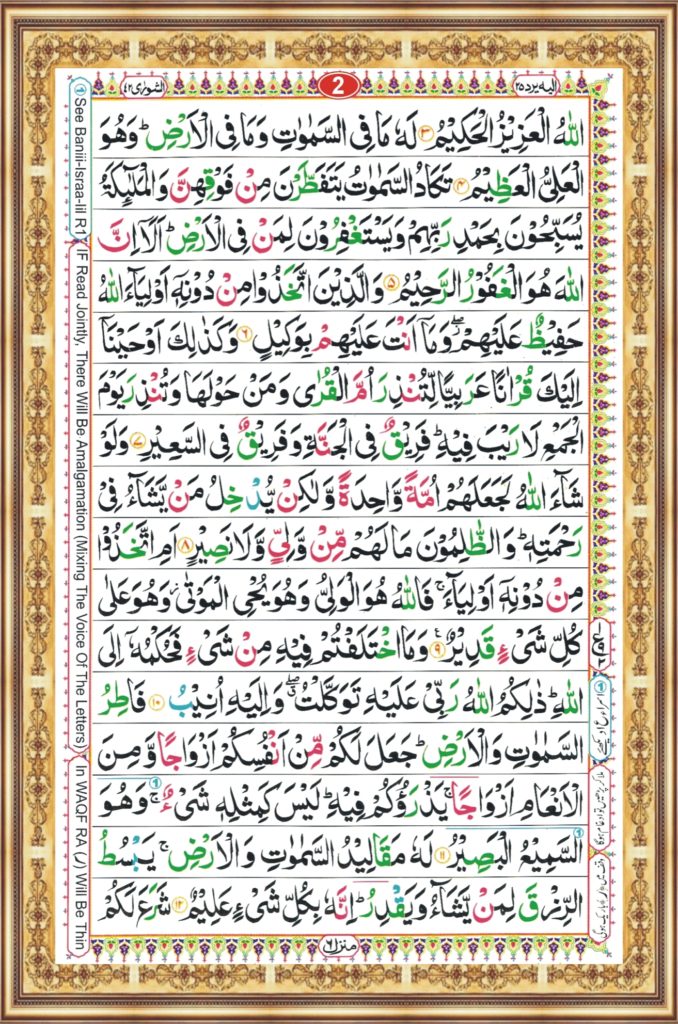 الشورٰى ٤٢
2
اليه يرد ٢٥
اللّٰهُ الْعَزِيْزُ الْحَكِيْمُ ۝٣ لَهٗ مَا فِى السَّمٰوٰتِ وَمَا فِى الْاَرْضِ ؕ وَهُوَ
الْعَلِىُّ الْعَظِيْمُ ۝٤ تَكَادُ السَّمٰوٰتُ يَتَفَطَّرْنَ مِنْ فَوْقِهِنَّ وَالْمَلٰٓئِكَةُ
يُسَبِّحُوْنَ بِحَمْدِ رَبِّهِمْ وَيَسْتَغْفِرُوْنَ لِمَنْ فِى الْاَرْضِ ؕ اَلَاۤ اِنَّ
اللّٰهَ هُوَ الْغَفُوْرُ الرَّحِيْمُ ۝٥ وَالَّذِيْنَ اتَّخَذُوْا مِنْ دُوْنِهٖۤ اَوْلِيَآءَ اللّٰهُ
حَفِيْظٌ عَلَيْهِمْ ۖ وَمَاۤ اَنْتَ عَلَيْهِمْ بِوَكِيْلٍ ۝٦ وَكَذٰلِكَ اَوْحَيْنَاۤ
اِلَيْكَ قُرْاٰنًا عَرَبِيًّا لِّتُنْذِرَ اُمَّ الْقُرٰى وَمَنْ حَوْلَهَا وَتُنْذِرَ يَوْمَ
الْجَمْعِ لَا رَيْبَ فِيْهِ ؕ فَرِيْقٌ فِى الْجَنَّةِ وَفَرِيْقٌ فِى السَّعِيْرِ ۝٧ وَلَوْ
شَآءَ اللّٰهُ لَجَعَلَهُمْ اُمَّةً وَّاحِدَةً وَّلٰكِنْ يُّدْخِلُ مَنْ يَّشَآءُ فِىْ
رَحْمَتِهٖ ؕ وَالظّٰلِمُوْنَ مَا لَهُمْ مِّنْ وَّلِىٍّ وَّلَا نَصِيْرٍ ۝٨ اَمِ اتَّخَذُوْا
مِنْ دُوْنِهٖۤ اَوْلِيَآءَ ۚ فَاللّٰهُ هُوَ الْوَلِىُّ وَهُوَ يُحْىِ الْمَوْتٰى ؗ وَهُوَ عَلٰى
كُلِّ شَىْءٍ قَدِيْرٌ ۝٩ وَمَا اخْتَلَفْتُمْ فِيْهِ مِنْ شَىْءٍ فَحُكْمُهٗۤ اِلَى
اللّٰهِ ؕ ذٰلِكُمُ اللّٰهُ رَبِّىْ عَلَيْهِ تَوَكَّلْتُ ۖ وَاِلَيْهِ اُنِيْبُ ۝١٠ فَاطِرُ
السَّمٰوٰتِ وَالْاَرْضِ ؕ جَعَلَ لَكُمْ مِّنْ اَنْفُسِكُمْ اَزْوَاجًا وَّمِنَ
الْاَنْعَامِ اَزْوَاجًا ۚ يَذْرَؤُكُمْ فِيْهِ ؕ لَيْسَ كَمِثْلِهٖ شَىْءٌ ۚ وَهُوَ
السَّمِيْعُ الْبَصِيْرُ ۝١١ لَهٗ مَقَالِيْدُ السَّمٰوٰتِ وَالْاَرْضِ ۚ يَبْسُطُ
الرِّزْقَ لِمَنْ يَّشَآءُ وَيَقْدِرُ ؕ اِنَّهٗ بِكُلِّ شَىْءٍ عَلِيْمٌ ۝١٢ شَرَعَ لَكُمْ
منزل ٦
See Baniii-Israa-lil R1 IF Read Jointly, There Will Be Amalgamation (Mixing The Voice Of The Letters) In WAQF RA (ر) Will Be Thin